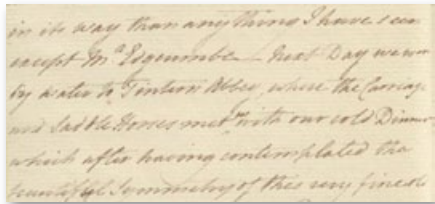 in its way than any thing I have seen
except Mt Edgcumbe — Next Day we
by water to Tintern Abbey, where the Carriage
and Saddle Horses met us with our cold Dinner
which after having contemplated the
beautiful Symmetry of this very finest